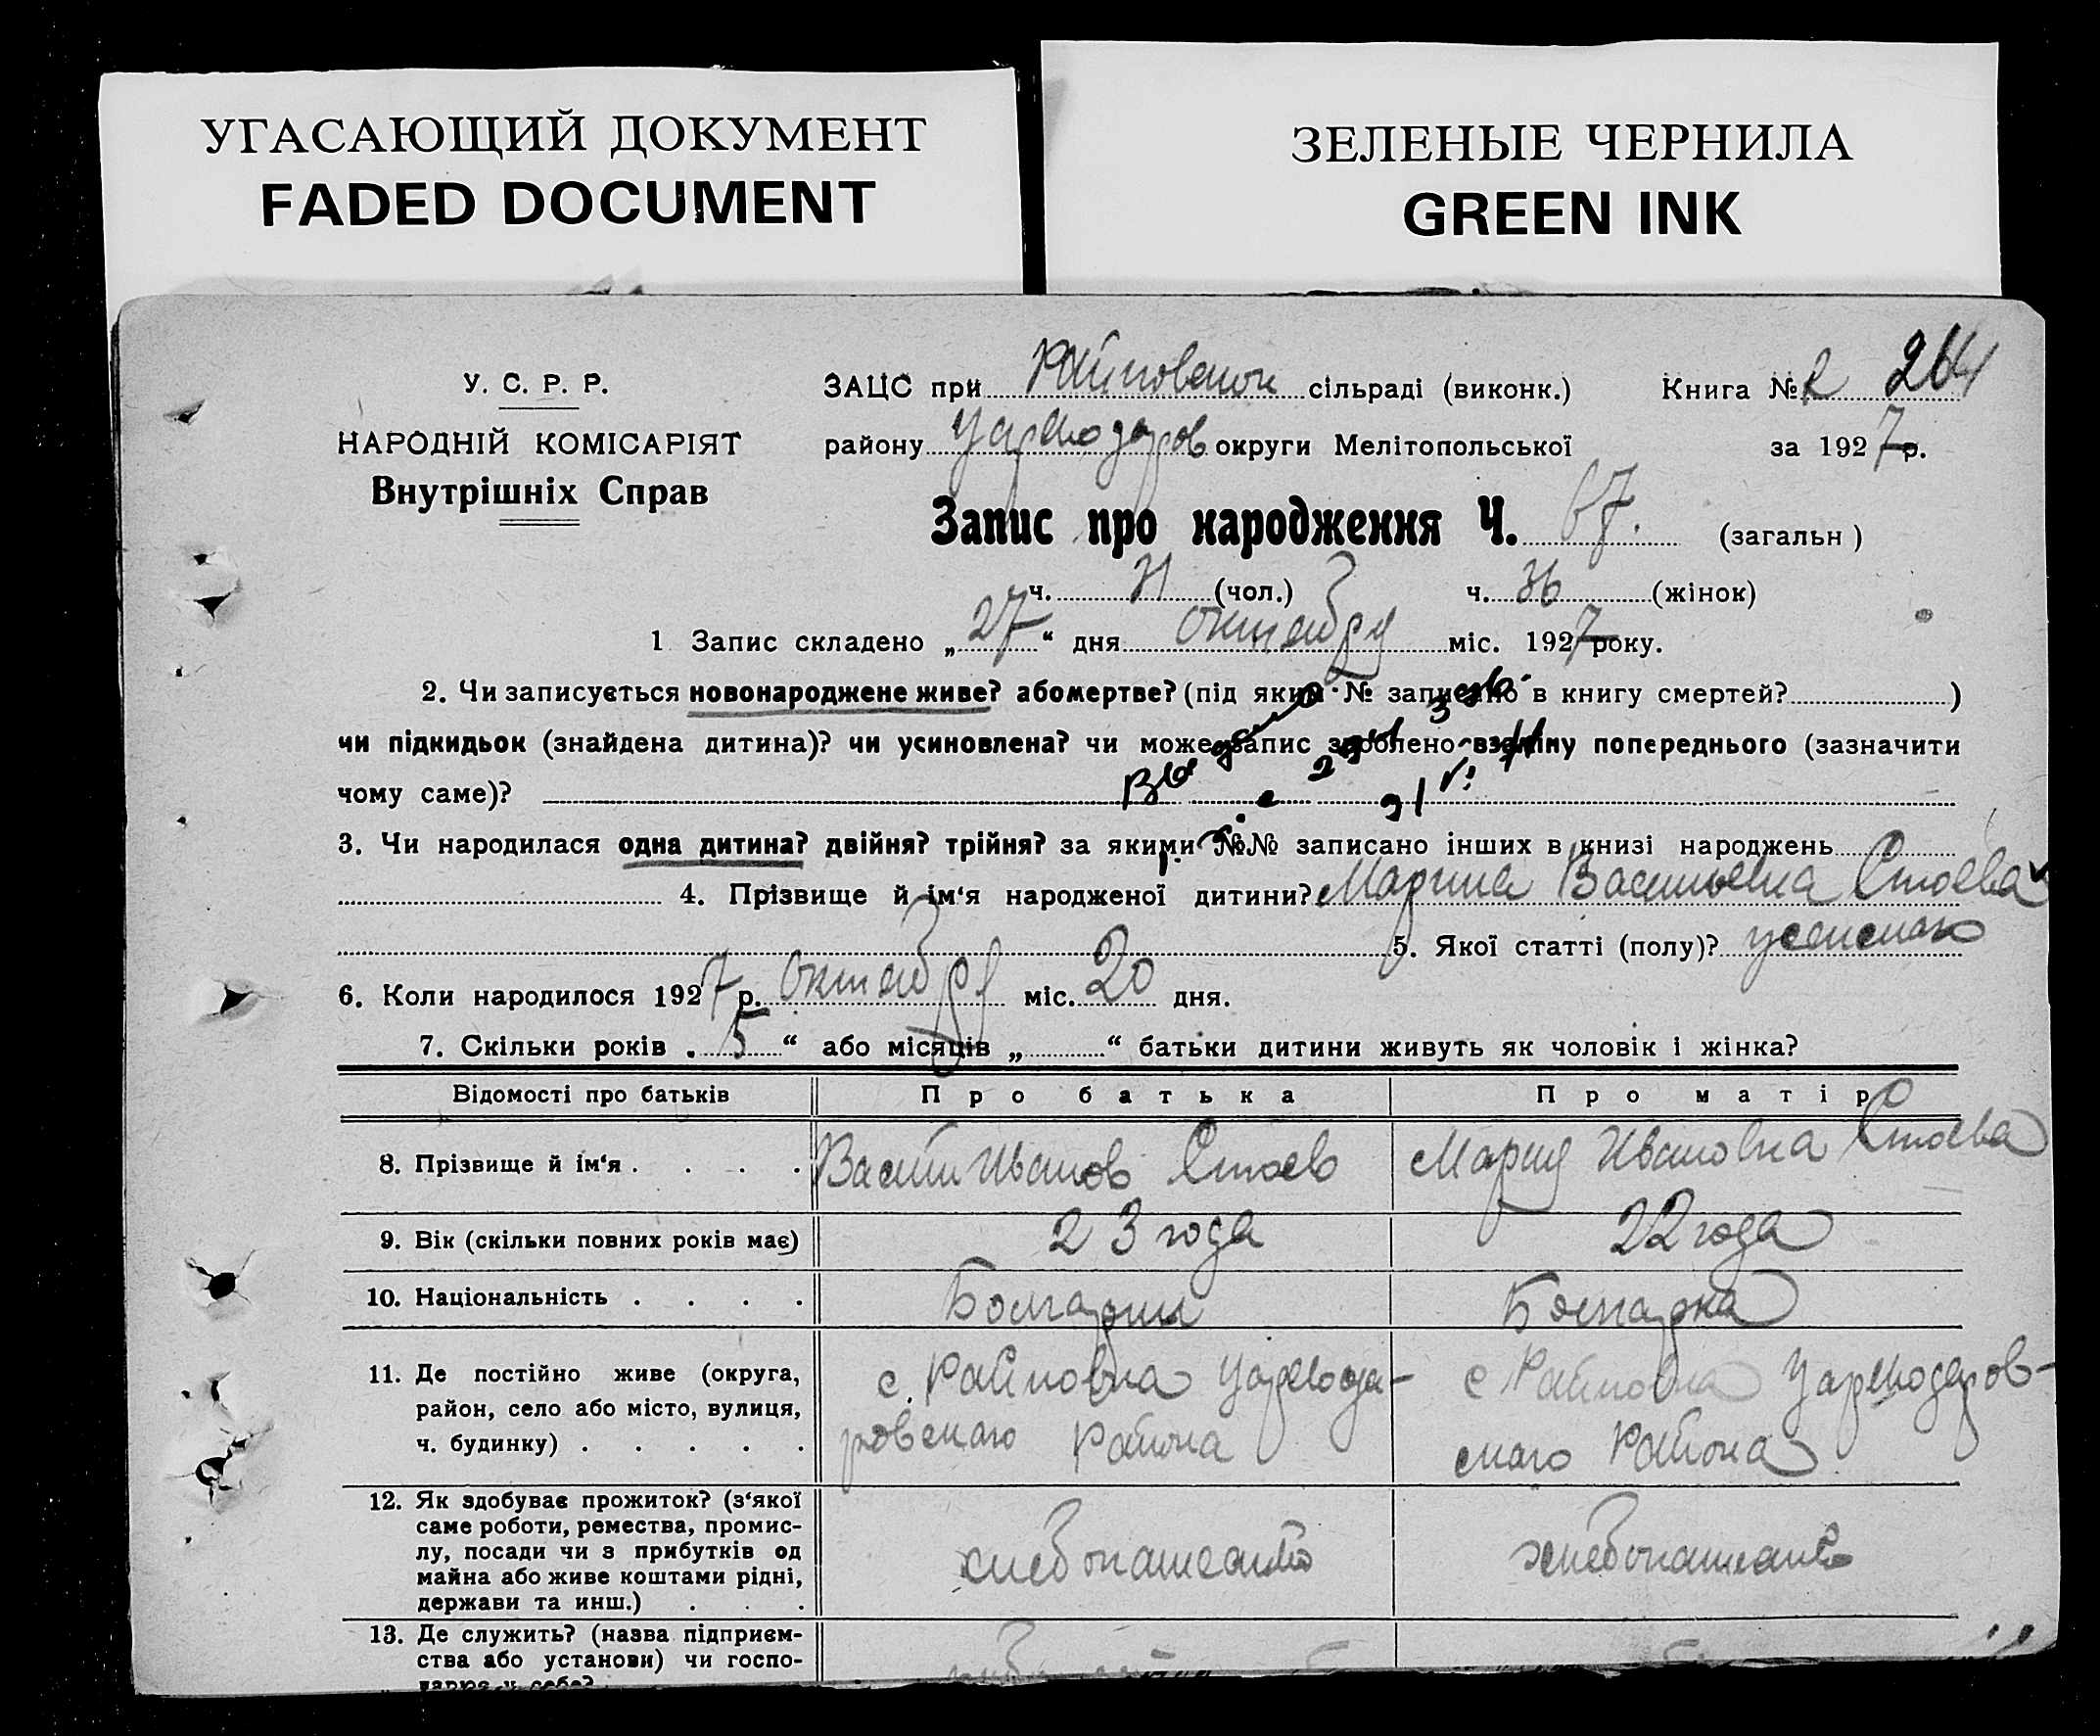 УГАСАЮЩИЙ ДОКУМЕНТ
FADED DOCUMENT
ЗЕЛЕНЫЕ ЧЕРНИЛА
GREEN INK
У. С. Р. Р.
НАРОДНІЙ КОМІСАРІЯТ
Внутрішніх Справ
ЗАЦС при Райновской сільраді (виконк.) Книга № 2 264
району Цареводаров округи Мелітопольської за 1927 р.
Запис про народження Ч. 67. (загальн)
ч. 31 (чол.) ч. 36 (жінок)
1 Запис складено „27“ дня октября міс. 1927 року.
2. Чи записується новонароджене живе? або мертве? (під яким № записано в книгу смертей? )
чи підкидьок (знайдена дитина)? чи усиновлена? чи може запис зроблено взаміну попереднього (зазначити
чому саме)?
3. Чи народилася одна дитина? двійня? трійня? за якими №№ записано інших в книзі народжень
4. Прізвище й ім‘я народженої дитини? Марина Васильевна Стоева
5. Якої статті (полу)? женскаго
6. Коли народилося 1927 р. октября міс. 20 дня.
7. Скільки років „5“ або місяців „ “ батьки дитини живуть як чоловік і жінка?
Відомості про батьків Про батька Про матір
8. Прізвище й ім‘я . . . . Васили Иванов Стоев Мария Ивановна Стоева
9. Вік (скільки повних років має) 23 года 22 года
10. Національність . . . . Болгарин Болгарка
11. Де постійно живе (округа,
район, село або місто, вулиця,
ч. будинку) . . . . .
с. Райновка Царевода-
ровскаго Района
с Райновка Цареводаров-
скаго Района
12. Як здобуває прожиток? (з‘якої
саме роботи, ремества, промис-
лу, посади чи з прибутків од
майна або живе коштами рідні,
держави та инш.) . . .
хлебопашество
хлебопашество
13. Де служить? (назва підприєм-
ства або установи) чи госпо-
дарює у себе?